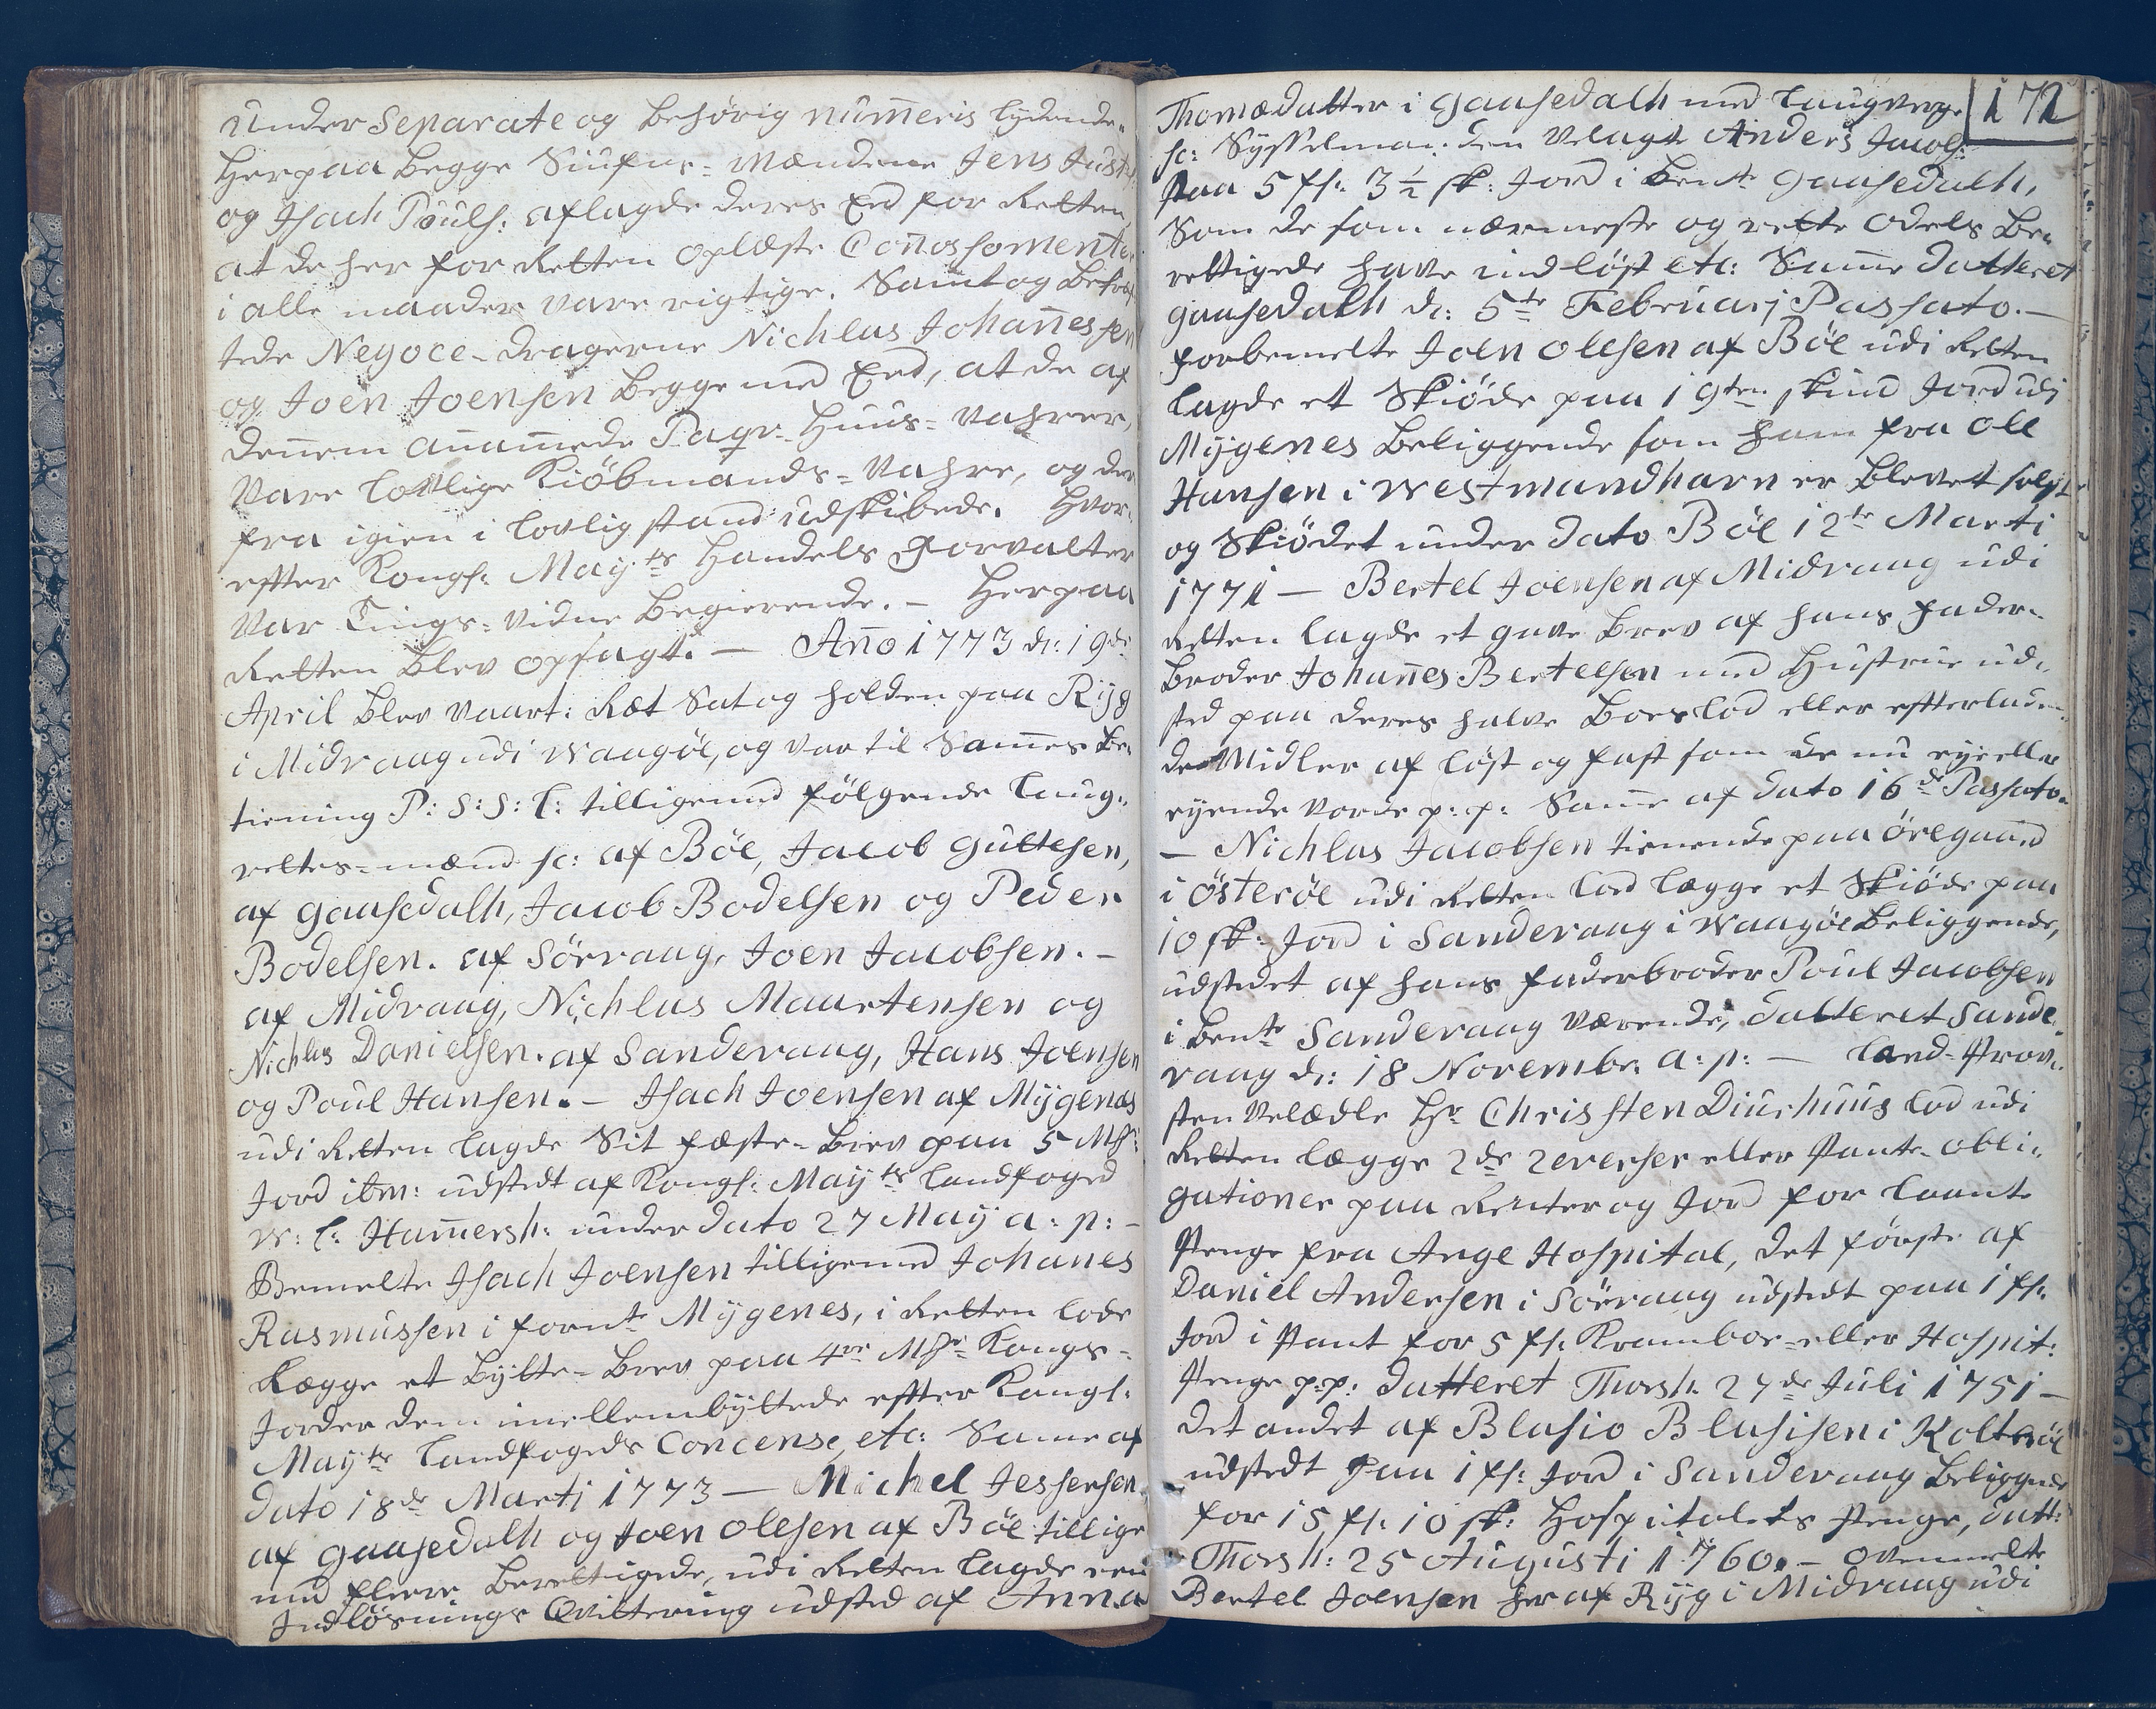 under Separate og behörig numeris lydende.
Herpaa begge Siufns-Mændene Jens Just:
og Isach Pouls: aflagde deres Eed for Retten,
at de her for Retten oplæste Connossomenter
i alle maader vare rigtige. Samt og bekræf-
tede Negoce-dragerne Nichlas Johannessen
og Joen Joensen begge med Eed, at de af
dennem annammede Paqv-Huus-Vahrer,
Vare lovlige Kiöbmands-Vahre, og der
fra igien i lovlig stand udskibede. Hvor-
efter Kongl: Mayts Handels Forvalter
Var Tings-Vidne begierende. — Herpaa
Retten blev opsagt. — Anno 1773 d: 19de
April blev Vaart: Ræt Sat og holden paa Ryg
i Midvaag udi Waagöe, og var til Sammes be-
tiening P: S: S: L: tilligemed fölgende Laug-
rettes-mænd sc: af Böe, Jacob Guttesen,
af Gaasedalh, Jacob Bodelsen og Peder
Bodelsen. af Sörvaag, Joen Jacobsen. —
af Midvaag, Nichlas Maartensen og
Nichlas Danielsen. af Sandevaag, Hans Joensen
og Poul Hansen. — Isach Joensen af Mygenæs
udi Retten lagde Sit fæste-brev paa 5 Mk:
Jord ibm: udstedt af Kongl: Mayts Landfoged
W: L: Hammersh: under dato 27 May a: p: —
Bemelte Isach Joensen tilligemed Johanes
Rasmussen i fornte Mygenes, i Retten lode
Lægge et Bytte-brev paa 4re Mkr Kongs-
Jorder dem imellembyttede efter Kongl:
Mayts Landfogeds Concense, etc: Samme af
dato 18de Marti 1773 — Michel Jessersen
af Gaasedalh og Joen Olesen af Böe tillige
med flere berettigede, udi Retten lagde een
Indlösnings Qvittering udsted af Anna
172
Thomædatter i Gaasedalh med Laugverge
sc: Sysselman: den Velagte Anders Jacobs:
paa 5 fs: 3 1/2 sk: Jord i bente Gaasedalh,
Som de som nærmeste og rette Odels be-
rettigede have indlöst etc: Samme datteret
Gaasedalh d: 5te Februarj Passato. —
forbemelte Joen Olesen af Böe udi Retten
lagde et Skiöde paa 19ten skind Jord udi
Mygenes beliggende som ham fra Ole
Hansen i Westmandhavn er blevet solgt
og Skiödet under dato Böe 12te Marti
1771 — Bertel Joensen af Midvaag udi
Retten lagde et gave brev af hans Fader-
broder Johannes Bertelsen med Hustrue ud-
sted paa deres halve Boeslod eller efterladen-
de Midler af löst og fast som de nu eyer eller
eyende Vorde p: p: Samme af dato 16de Passato.
— Nichlas Jacobsen tienende paa Öregaard
i Österöe udi Retten lod lægge et Skiöde paa
10 sk: Jord i Sandevaag i Waagöe beliggende,
udstedet af hans faderbroder Poul Jacobsen
i bente Sandevaag værende, datteret Sande-
vaag d: 18 Novembr: a: p: — Land-Prov-
sten Velædle Hr Christen Diurhuus lod udi
Retten lægge 2de Reverser eller Pante-obli-
gationer paa Renter og Jord for laante
Penge fra Arge Hospital, det förste af
Daniel Andersen i Sörvaag udstedt paa 1 fs:
Jord i Pant for 5 fs: Kramboe- eller Hospit:
Penge p:p: datteret Thorsh: 27de Juli 1751 —
det andet af Blasio Blasisen i Kolteröe
udstedt paa 1 fs: Jord i Sandevaag beliggende
for 15 fs: 10 sk: Hospitalets Penge, datt:
Thorsh: 25 Augusti 1760. — Ovenmelte
Bertel Joensen her af Ryg i Midvaag udi